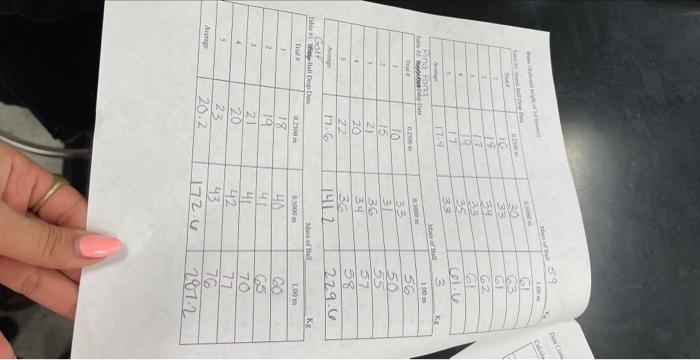 Data: (Rebound height of 1st bounce)
Mass of Ball 59 Kg
Table #1: Tennis Ball Drop Data
Trial # 0.2500 m 0.5000 m 1.00 m
1 16 30 61
2 18 33 63
3 17 34 61
4 19 33 62
5 17 35 61
Average 17.4 33 61.6
Ping Pong
Mass of Ball 3 Kg
Trial # 0.2500 m 0.5000 m 1.00 m
1 10 33 56
2 15 31 50
3 21 36 55
4 20 34 57
5 22 36 58
Average 17.6 141.2 229.6
Golf
Mass of Ball Kg
Table #1: Ball Drop Data
Trial # 0.2500 m 0.5000 m 1.00 m
1 18 40 60
2 19 41 65
3 21 41 70
4 20 42 77
5 23 43 76
Average 20.2 172.6 287.2
Data